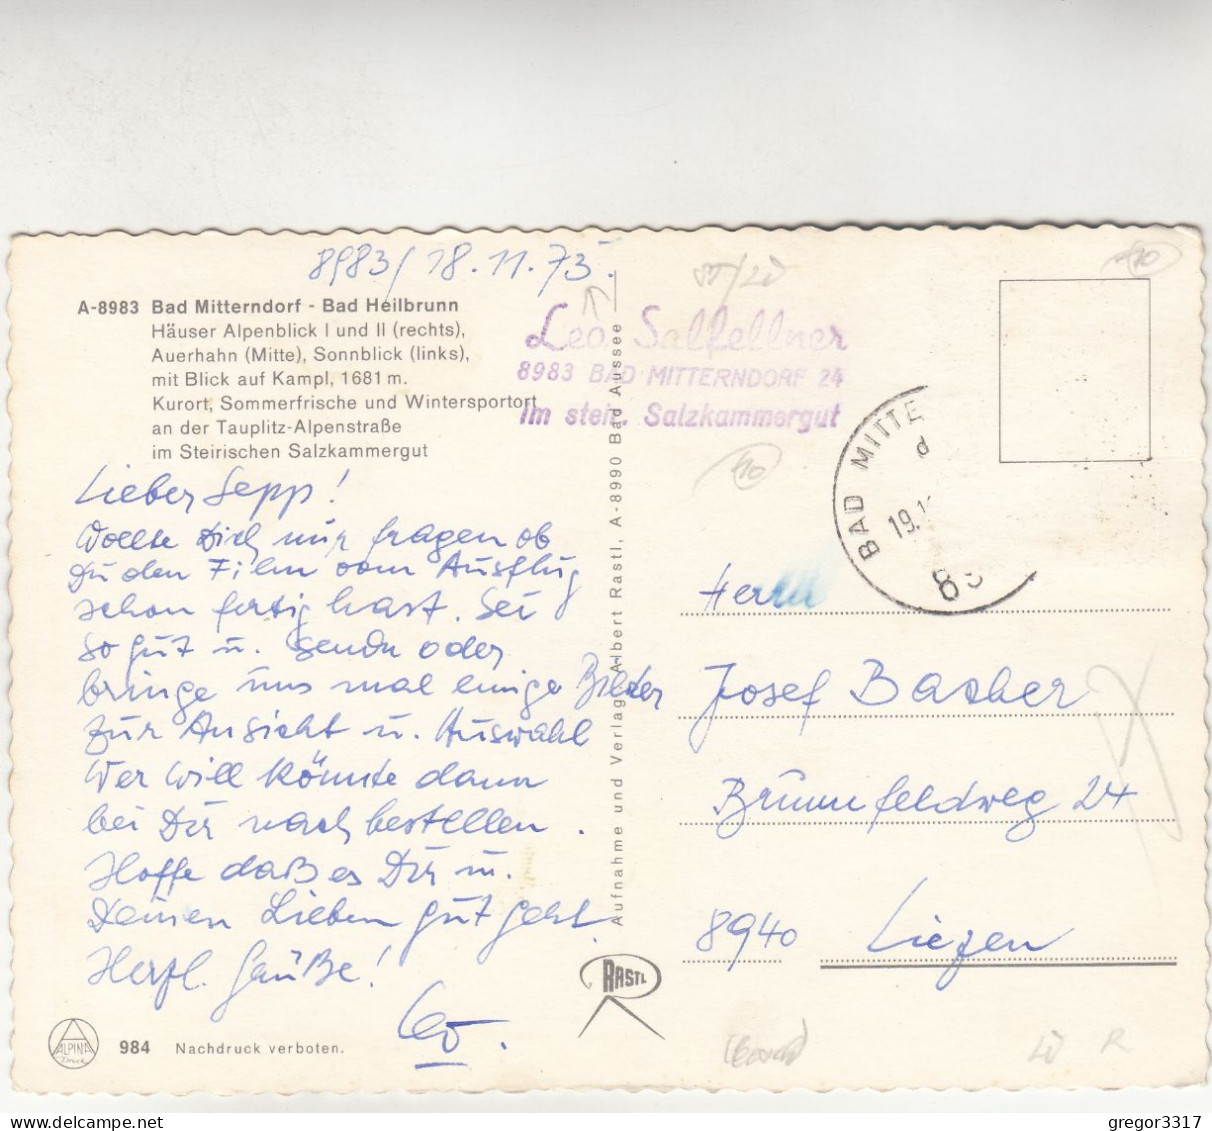 8983/18.11.73.
A-8983 Bad Mitterndorf - Bad Heilbrunn
Häuser Alpenblick I und II (rechts),
Auerhahn (Mitte), Sonnblick (links),
mit Blick auf Kampl, 1681 m.
Kurort, Sommerfrische und Wintersportort
an der Tauplitz-Alpenstraße
im Steirischen Salzkammergut
Leo Salfellner
8983 BAD MITTERNDORF 24
Im steir. Salzkammergut
Lieber Sepp!
Wollte Dich nur fragen ob
Du den Film vom Ausflug
schon fertig hast. Sei
so gut u. sende oder
bringe uns mal einige Bilder
zur Ansicht u. Auswahl
Wer will könnte dann
bei Dir nachbestellen.
Hoffe daß es Dir u.
Deinen Lieben gut geht.
Herzl. Grüße!
Leo.
Aufnahme und Verlag Albert Rastl, A-8990 Bad Aussee
RASTL
ALPINA
Druck
984 Nachdruck verboten.
BAD MITTE
d
19.1
89
40
40
Herrn
Josef Bacher
Brunnfeldweg 24
8940 Liezen
R
gregor3317